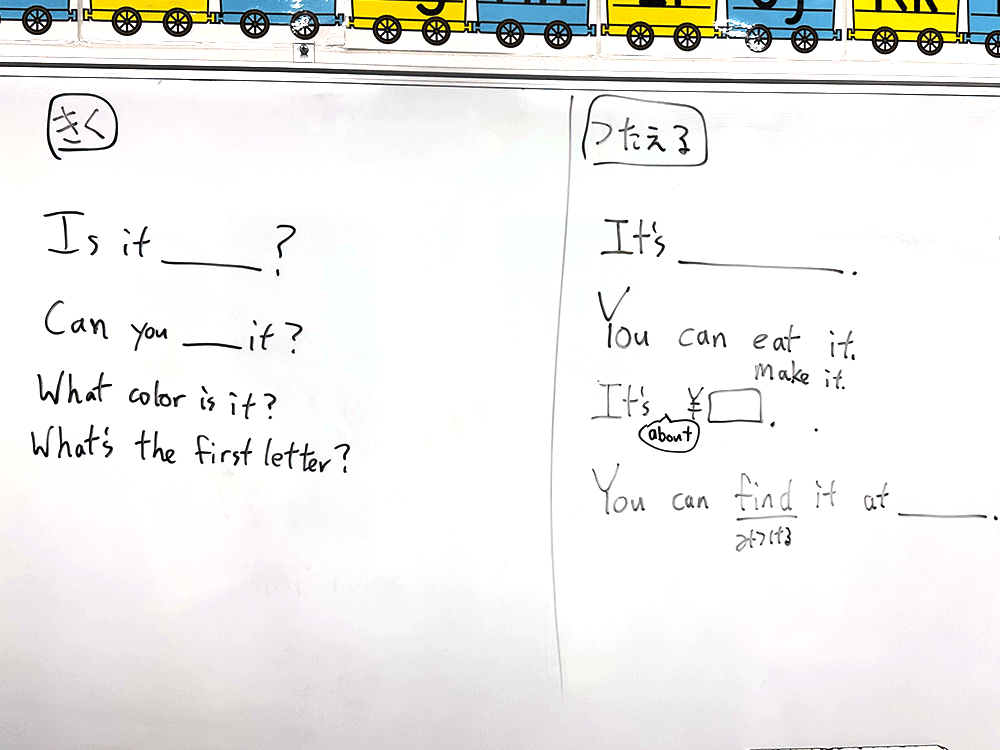 きく
Is it ____ ?
Can you ___ it?
What color is it?
What's the first letter?
つたえる
It's ________.
You can eat it.
make it.
It's about ¥□.
You can find it at ____.
みつける